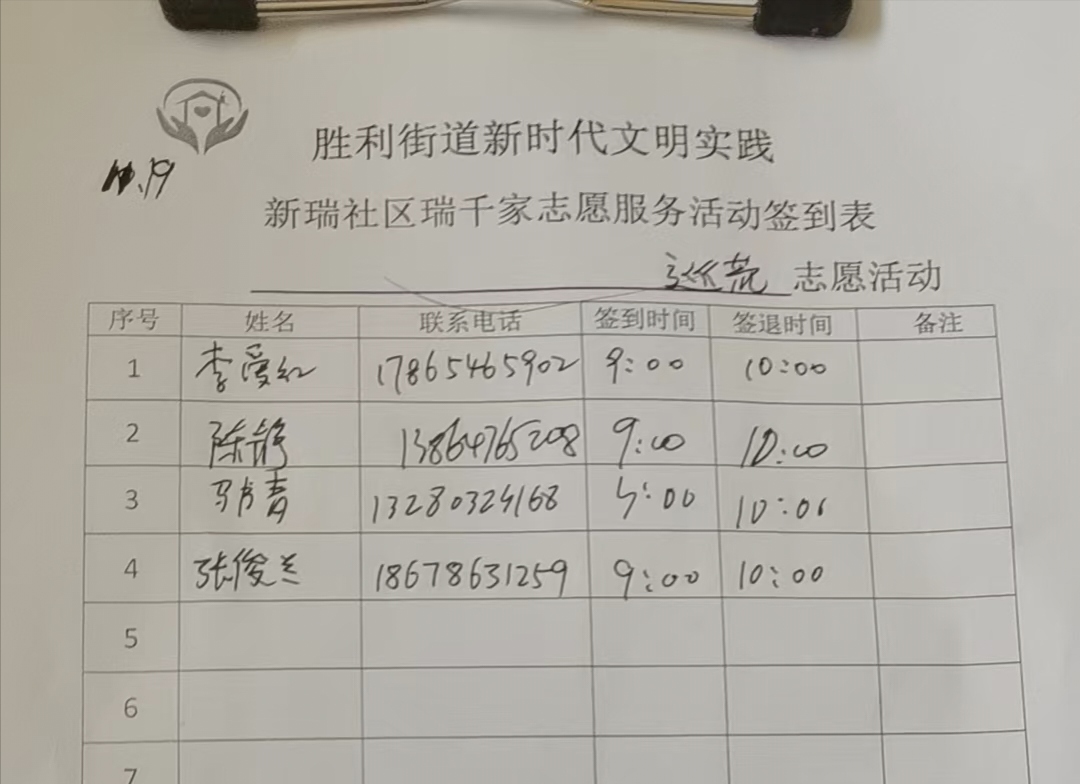 胜利街道新时代文明实践
新瑞社区瑞千家志愿服务活动签到表
志愿活动
序号 姓名 联系电话 签到时间 签退时间 备注
1 李爱红 17865465902 9:00 10:00
2 陈静 13864765208 9:00 10:00
3 马书青 13280324168 9:00 10:00
4 张俊兰 18678631259 9:00 10:00
5
6
7